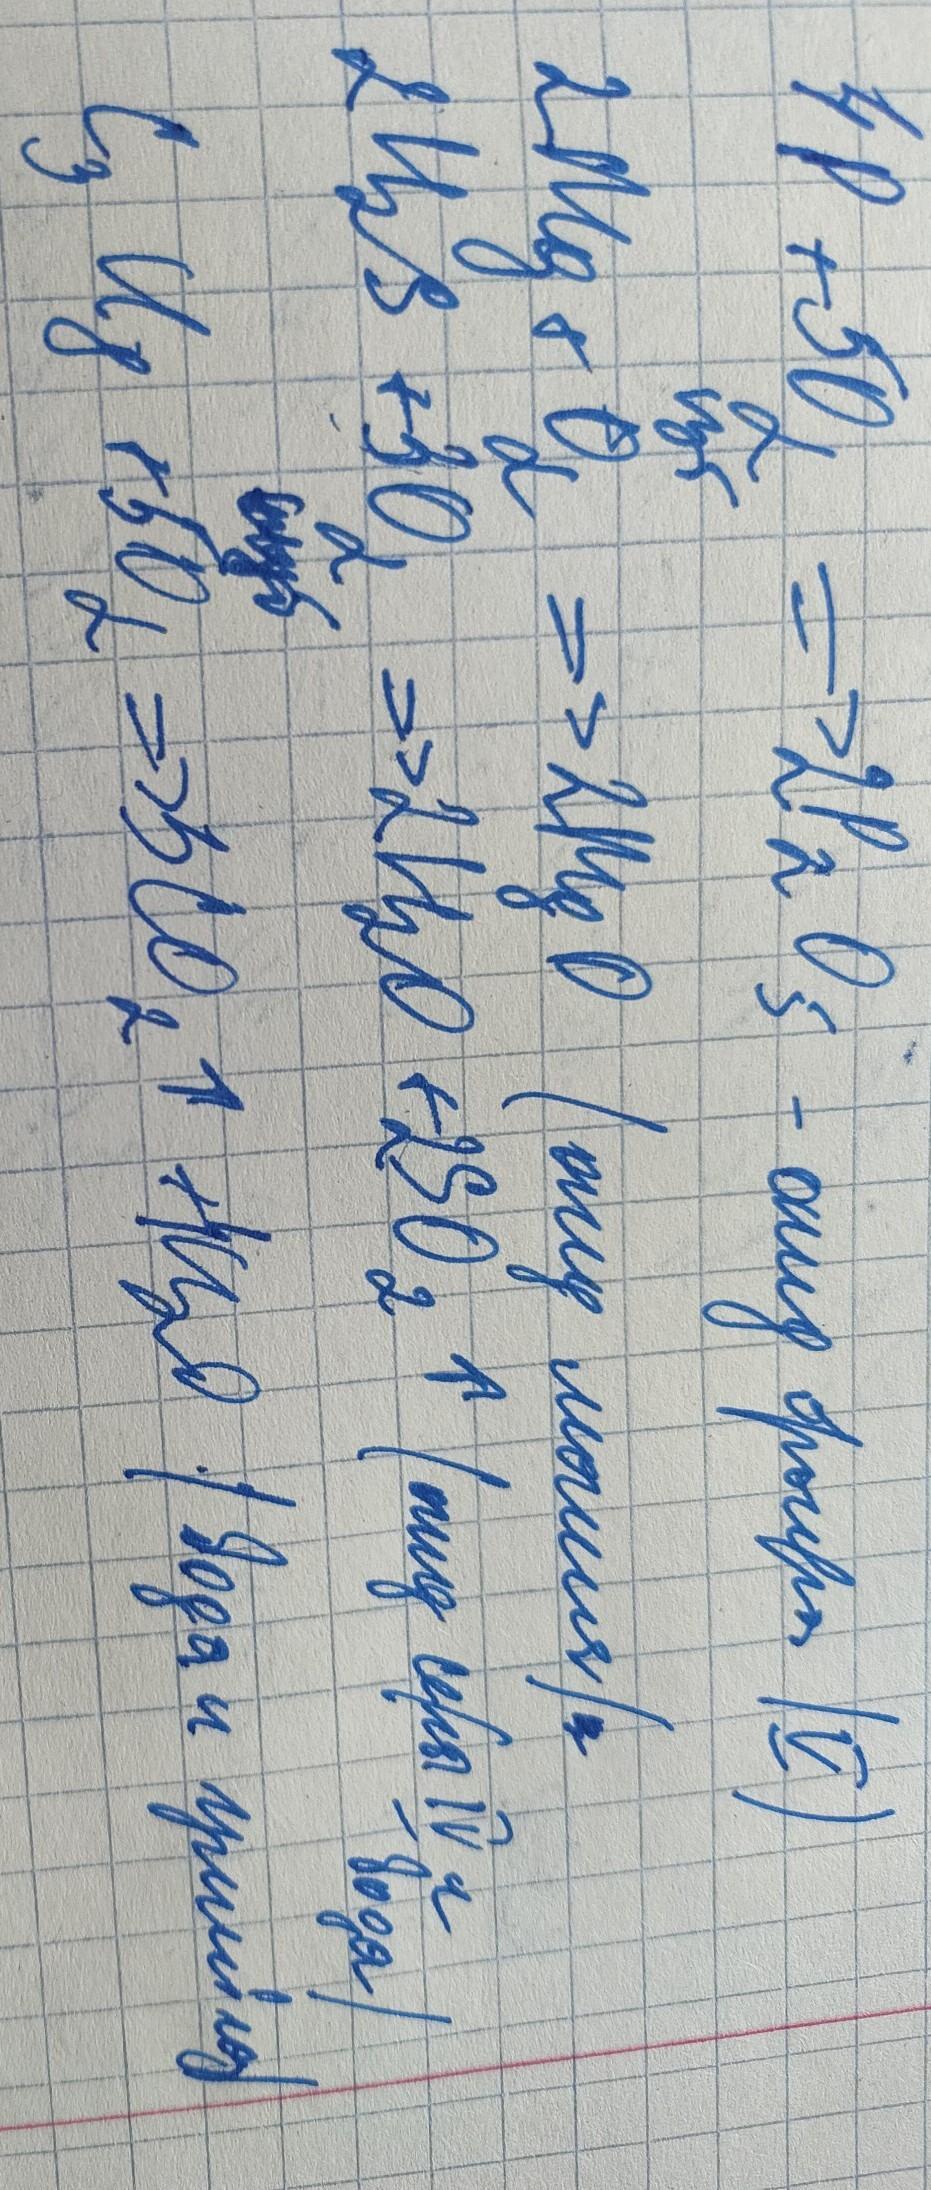 4P + 5O₂ изб => 2P₂O₅ - оксид фосфора (V)
2Mg + O₂ => 2MgO (оксид магния)
2H₂S + 3O₂ изб => 2H₂O + 2SO₂ ↑ (оксид серы IV и вода)
C₃H₈ + 5O₂ => 3CO₂ ↑ + H₂O (вода и